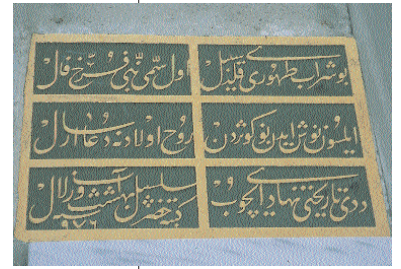 بو شراب طهوری قیلدی سبیل
اول سمی نبی فرخ فال
ایلسون نوش ایدن بو کوثردن
روح اولادنه دعا ارسال
ددی تاریخنی نهادی ایچوب
سلسبیل بهشت آب زلال